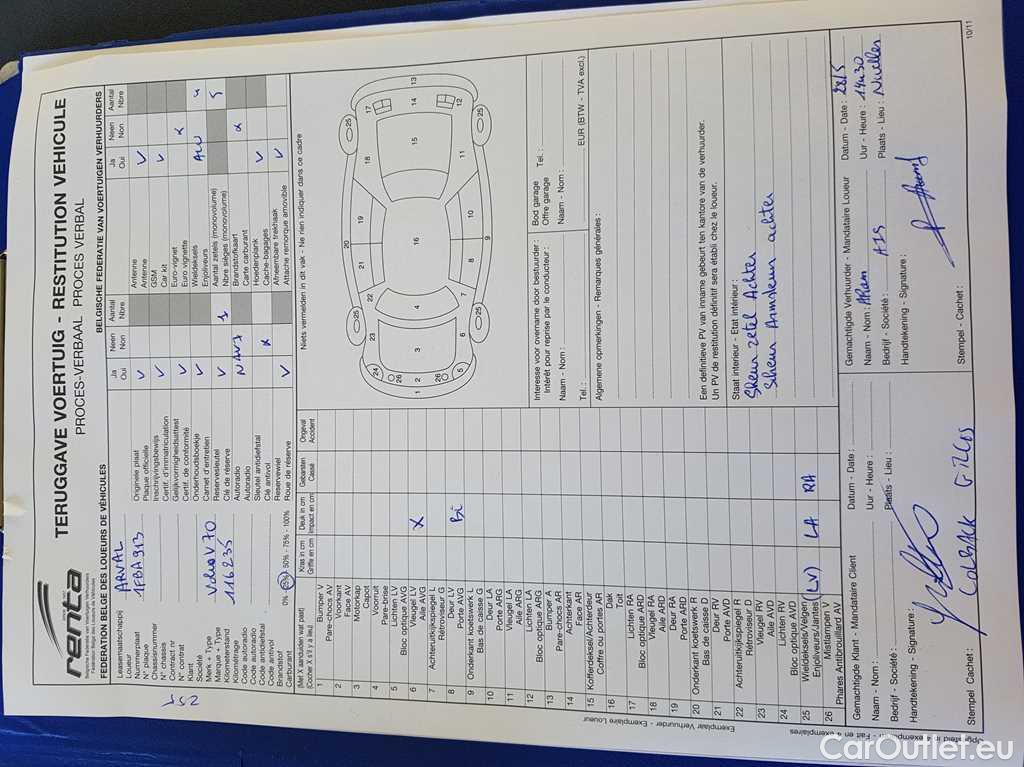 renta
Belgische Federatie van Voertuigen Verhuurders
Fédération Belge des Loueurs de Véhicules
TERUGGAVE VOERTUIG - RESTITUTION VEHICULE
PROCES-VERBAAL PROCES VERBAL
FEDERATION BELGE DES LOUEURS DE VÉHICULES
BELGISCHE FEDERATIE VAN VOERTUIGEN VERHUURDERS
152
Leasemaatschappij ARVAL
Loueur
Nummerplaat 1FBA913
N° plaque
Chassisnummer
N° chassis
Contract nr
N° contrat
Klant
Société
Merk - Type Volvo V70
Marque + Type
Kilometerstand 116235
Kilométrage
Code autoradio
Code autoradio
Code antidiefstal
Code antivol
Brandstof
Carburant 0% 25% - 50% - 75% - 100%
Ja Neen Aantal
Oui Non Nbre
Originele plaat V
Plaque officielle
Inschrijvingsbewijs V
Certif. d'immatriculation
Gelijkvormigheidsattest V
Certif. de conformité
Onderhoudsboekje V
Carnet d'entretien
Reservesleutel V 1
Clé de réserve
Autoradio NAVI
Autoradio
Sleutel antidiefstal X
Clé antivol
Reservewiel V
Roue de réserve
Ja Neen Aantal
Oui Non Nbre
Antenne V
Antenne
GSM V
Car kit
Euro-vignet X
Euro vignette
Wieldeksels ALU 4
Enjoliveurs
Aantal zetels (monovolume) 5
Nbre sièges (monovolume)
Brandstofkaart X
Carte carburant
Hoedenplank V
Cache-bagages
Afneembare trekhaak V
Attache remorque amovible
(Met X aanduiden wat past)
(Cocher X s'il y a lieu)
Kras in cm
Griffe en cm
Deuk in cm
Impact en cm
Gebarsten
Cassé
Ongeval
Accident
1 Bumper V
Pare-chocs AV
2 Voorkant
Face AV
3 Motorkap
Capot
4 Voorruit
Pare-brise
5 Lichten LV
Bloc optique AVG
6 Vleugel LV X
Aile AVG
7 Achteruitkijkspiegel L
Rétroviseur G
8 Deur LV Bi
Porte AVG
9 Onderkant koetswerk L
Bas de caisse G
10 Deur LA
Porte ARG
11 Vleugel LA
Aile ARG
12 Lichten LA
Bloc optique ARG
13 Bumper A
Pare-chocs AR
14 Achterkant
Face AR
15 Kofferdeksel/Achterdeur
Coffre ou portes AR
16 Dak
Toit
17 Lichten RA
Bloc optique ARD
18 Vleugel RA
Aile ARD
19 Deur RA
Porte ARD
20 Onderkant koetswerk R
Bas de caisse D
21 Deur RV
Porte AVD
22 Achteruitkijkspiegel R
Rétroviseur D
23 Vleugel RV
Aile AVD
24 Lichten RV
Bloc optique AVD
25 Wieldeksels/Velgen (LV) LA RA
Enjoliveurs/Jantes
26 Mistlampen LV
Phares Antibrouillard AV
Niets vermelden in dit vak - Ne rien indiquer dans ce cadre
1 2 3 4 5 6 7 8 9 10 11 12 13 14 15 16 17 18 19 20 21 22 23 24 25 25 25 25 26 26
Interesse voor overname door bestuurder :
Intérêt pour reprise par le conducteur :
Naam - Nom :
Tel. :
Bod garage
Offre garage
Tel. :
Naam - Nom :
EUR (BTW - TVA excl.)
Algemene opmerkingen - Remarques générales :
Een definitieve PV van inname gebeurt ten kantore van de verhuurder.
Un PV de restitution définitif sera établi chez le loueur.
Staat interieur - Etat intérieur :
Sheur zetel Achter
Scheur Armsteun achter
Gemachtigde Klant - Mandataire Client
Datum - Date :
Naam - Nom :
Uur - Heure :
Bedrijf - Société :
Plaats - Lieu :
Handtekening - Signature :
Stempel - Cachet :
Gemachtigde Verhuurder - Mandataire Loueur
Datum - Date : 28/5
Naam - Nom : ARam
Uur - Heure : 14u30
Bedrijf - Société : AIS
Plaats - Lieu :
Handtekening - Signature :
Stempel - Cachet :
Exemplaar Verhuurder - Exemplaire Loueur
Opgesteld in 4 exemplaren - Fait en 4 exemplaires
10/11
CarOutlet.eu